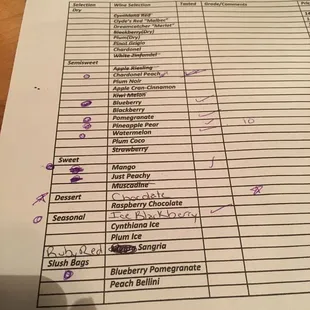 Selection Wine Selection Tasted Grade/Comments
Dry
Cynthiana Red
Clyde's Red "Malbec"
Dreamcatcher "Merlot"
Blackberry(Dry)
Plum(Dry)
Pinot Grigio
Chardonel
White Zinfandel
Semisweet
Apple Riesling
Chardonel Peach
Plum Noir
Apple Cran-Cinnamon
Kiwi Melon
Blueberry
Blackberry
Pomegranate
Pineapple Pear 10
Watermelon
Plum Coco
Strawberry
Sweet
Mango
Just Peachy
Muscadine
Dessert Chocolate
Raspberry Chocolate
Seasonal Ice Blackberry
Cynthiana Ice
Plum Ice
Ruby Red Sangria
Slush Bags
Blueberry Pomegranate
Peach Bellini